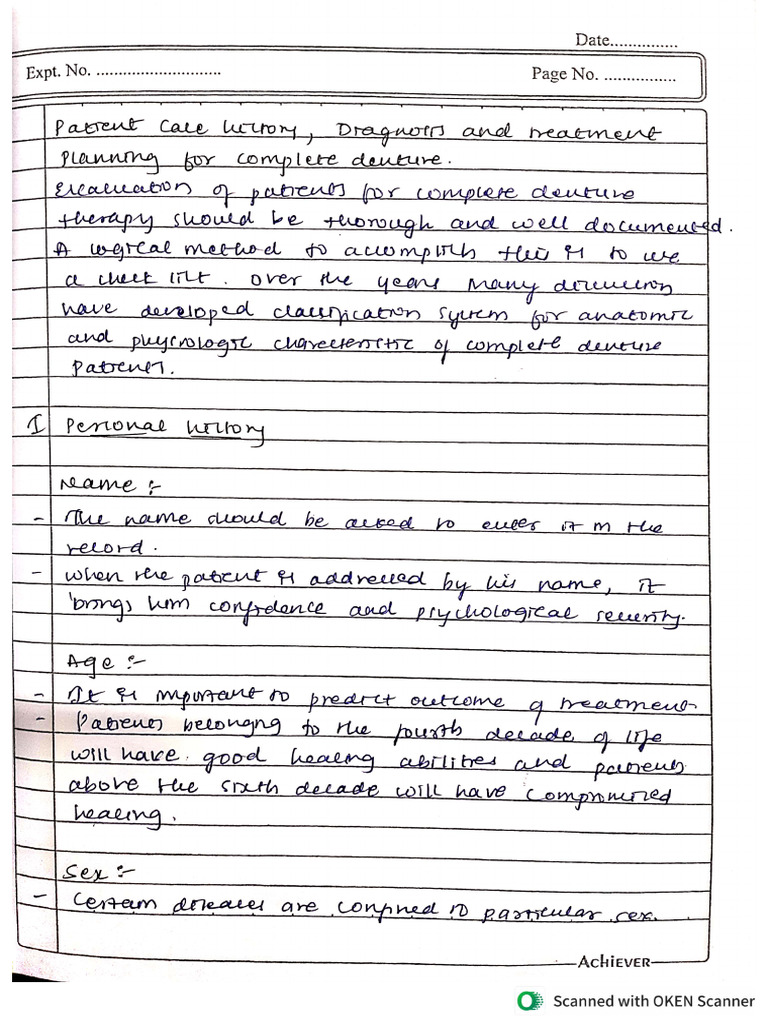 Date...............
Expt. No. ............................
Page No. ................
Patient Case history, Diagnosis and treatment
planning for complete denture.
Evaluation of patients for complete denture
therapy should be thorough and well documented.
A logical method to accomplish this is to use
a check list. over the years many
have developed classification system for anatomic
and physiologic characteristic of complete denture
patients.
I Personal history
Name :-
- The name should be asked to enter it in the
record.
- when the patient is addressed by his name, it
brings him confidence and psychological security.
Age :-
- It is important to predict outcome of treatment
- Patients belonging to the fourth decade of life
will have good healing abilities and patients
above the sixth decade will have compromized
healing.
Sex :-
- Certain diseases are confined to particular sex.
ACHiEVER
Scanned with OKEN Scanner